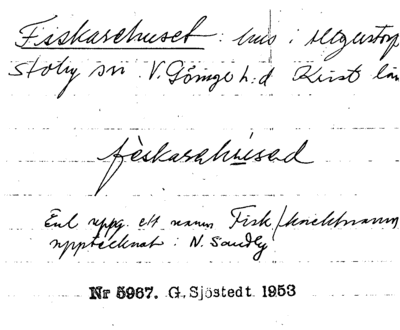 Fiskarehuset: hus i Algustorp
Stoby sn V. Göinge h:d Krist län
fèskarahùsed
Enl uppg. ett namn Fisk/
upptecknat: N. Sandby
Nr 5967. G. Sjöstedt 1953